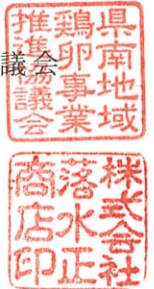 議会
県南地域
鶏卵事業
推進協議会
株式会社
落水正
商店印